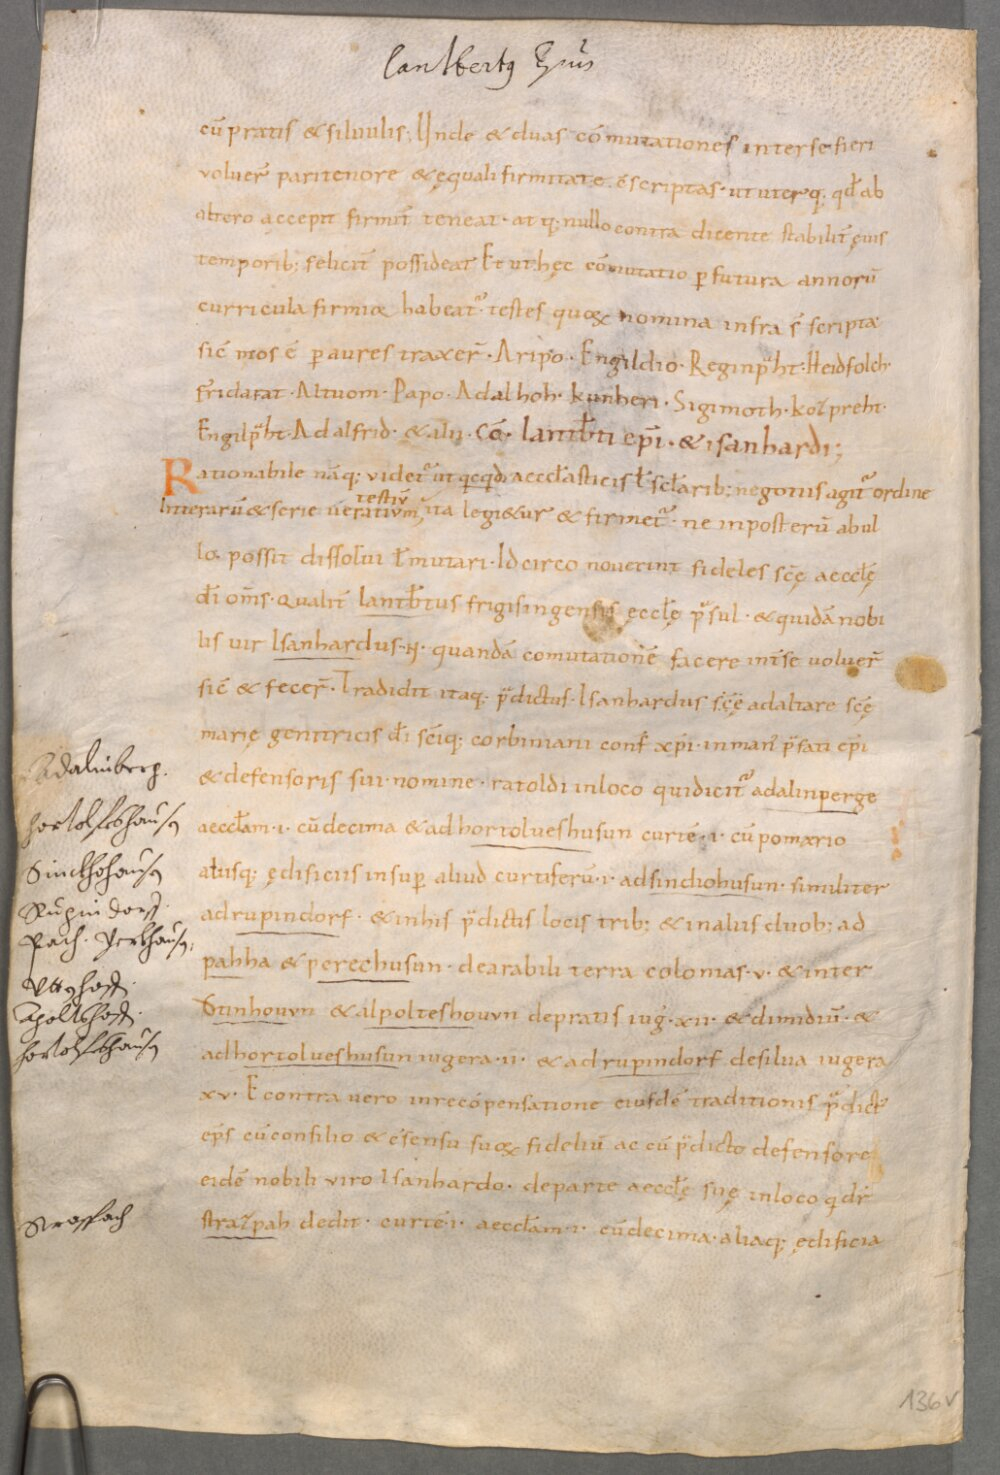 Lantbertus Ep̄us
cū pratis & siluulis; Unde & duas cōmutationes inter se fieri
voluer̄ pari tenore & ęquali firmitate c̄scriptas · ut uterq; qđ ab
altero accepit firmit̄ teneat · atq; nullo contra dicente stabilit̄ ęuis
temporib; felicit̄ possideat Et ut hęc cōmutatio p futura annorū
curricula firma habeat᷑ · testes quoꝝ nomina infra s̄ scripta
sic̄ mos ē p aures traxer̄ · Aripo · Engildio · Reginp̄ht · Heidfolch ·
Fridarat · Altuom · Papo · Adalhoh · kunheri · Sigimoth · kozpreht ·
Engilp̄ht · Adalfrid · & alii · Cō · lantb̄ti ep̄i · & isanhardi;
Rationabile nāq; videt᷑ ut qcqd aeccłasticis ł scłarib; negotiis agit᷑ ordine
litterarū & serie veratium testiū ita legi&ur & firmet᷑ · ne in posterū ab ul
lo possit dissolui ł mutari · Id circo noverint fideles sc̄ę aeccłę
dī om̄s · qualit̄ lantb̄tus frigisingensis ęccłę p̄sul · & quidā nobi
lis uir Isanhardus · n̄ · quandā comutationē facere int̄ se voluer̄
sic̄ & fecer̄ · Tradidit itaq; p̄dictus · Isanhardus sc̄ę ad altare sc̄ę
marię genitricis dī sc̄iq; corbiniani conf̄ xp̄i · in man̄ p̄fati ep̄i
& defensoris sui · nomine · ratoldi in loco qui dicit᷑ adalinperge
aeccłam · i · cū decima & ad hortolueshusun curtē · i · cū pomario
aliisq; ędificiis insup aliud curtiferū · i · ad sindiohusun · similiter
ad rupindorf · & in his p̄dictis locis trib; & in aliis duob; ad
pahha & perechusun · de arabili terra colonias · v · & inter
Utinhouvn & alpolteshouvn de pratis iuḡ · xii · & dimidiū · &
ad hortolueshusun iugera · ii · & ad rupindorf de silua iugera
xv · E contra vero in recōpensatione eiusdē traditionis p̄dict̄
ep̄s cū consilio & c̄sensu suoꝝ fideliū ac cū p̄dicto defensore
eidē nobili viro Isanhardo · de parte aeccłę suę in loco q dr̄
strazpah dedit · curtē · i · aeccłam · i · cū decima · aliaq; ędificia
Adalinberg.
hortolfshausn
Sindhohausn
Rupindorf.
Pach. Perkhausn:
Uttnhoff.
Apoltshoff.
hortolfshausn
Straspach
136v